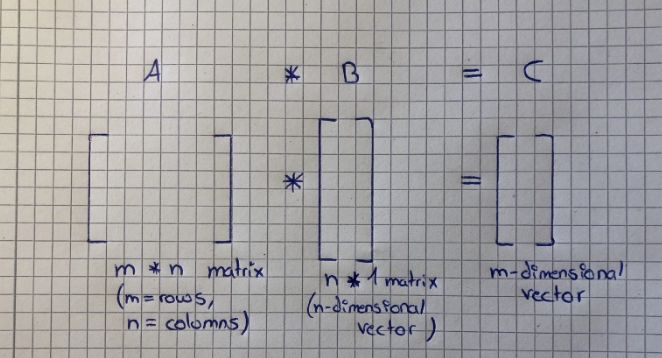 A * B = C
* =
m * n matrix
(m=rows,
n=colomns)
n * 1 matrix
(n-dimensional
vector)
m-dimensional
vector